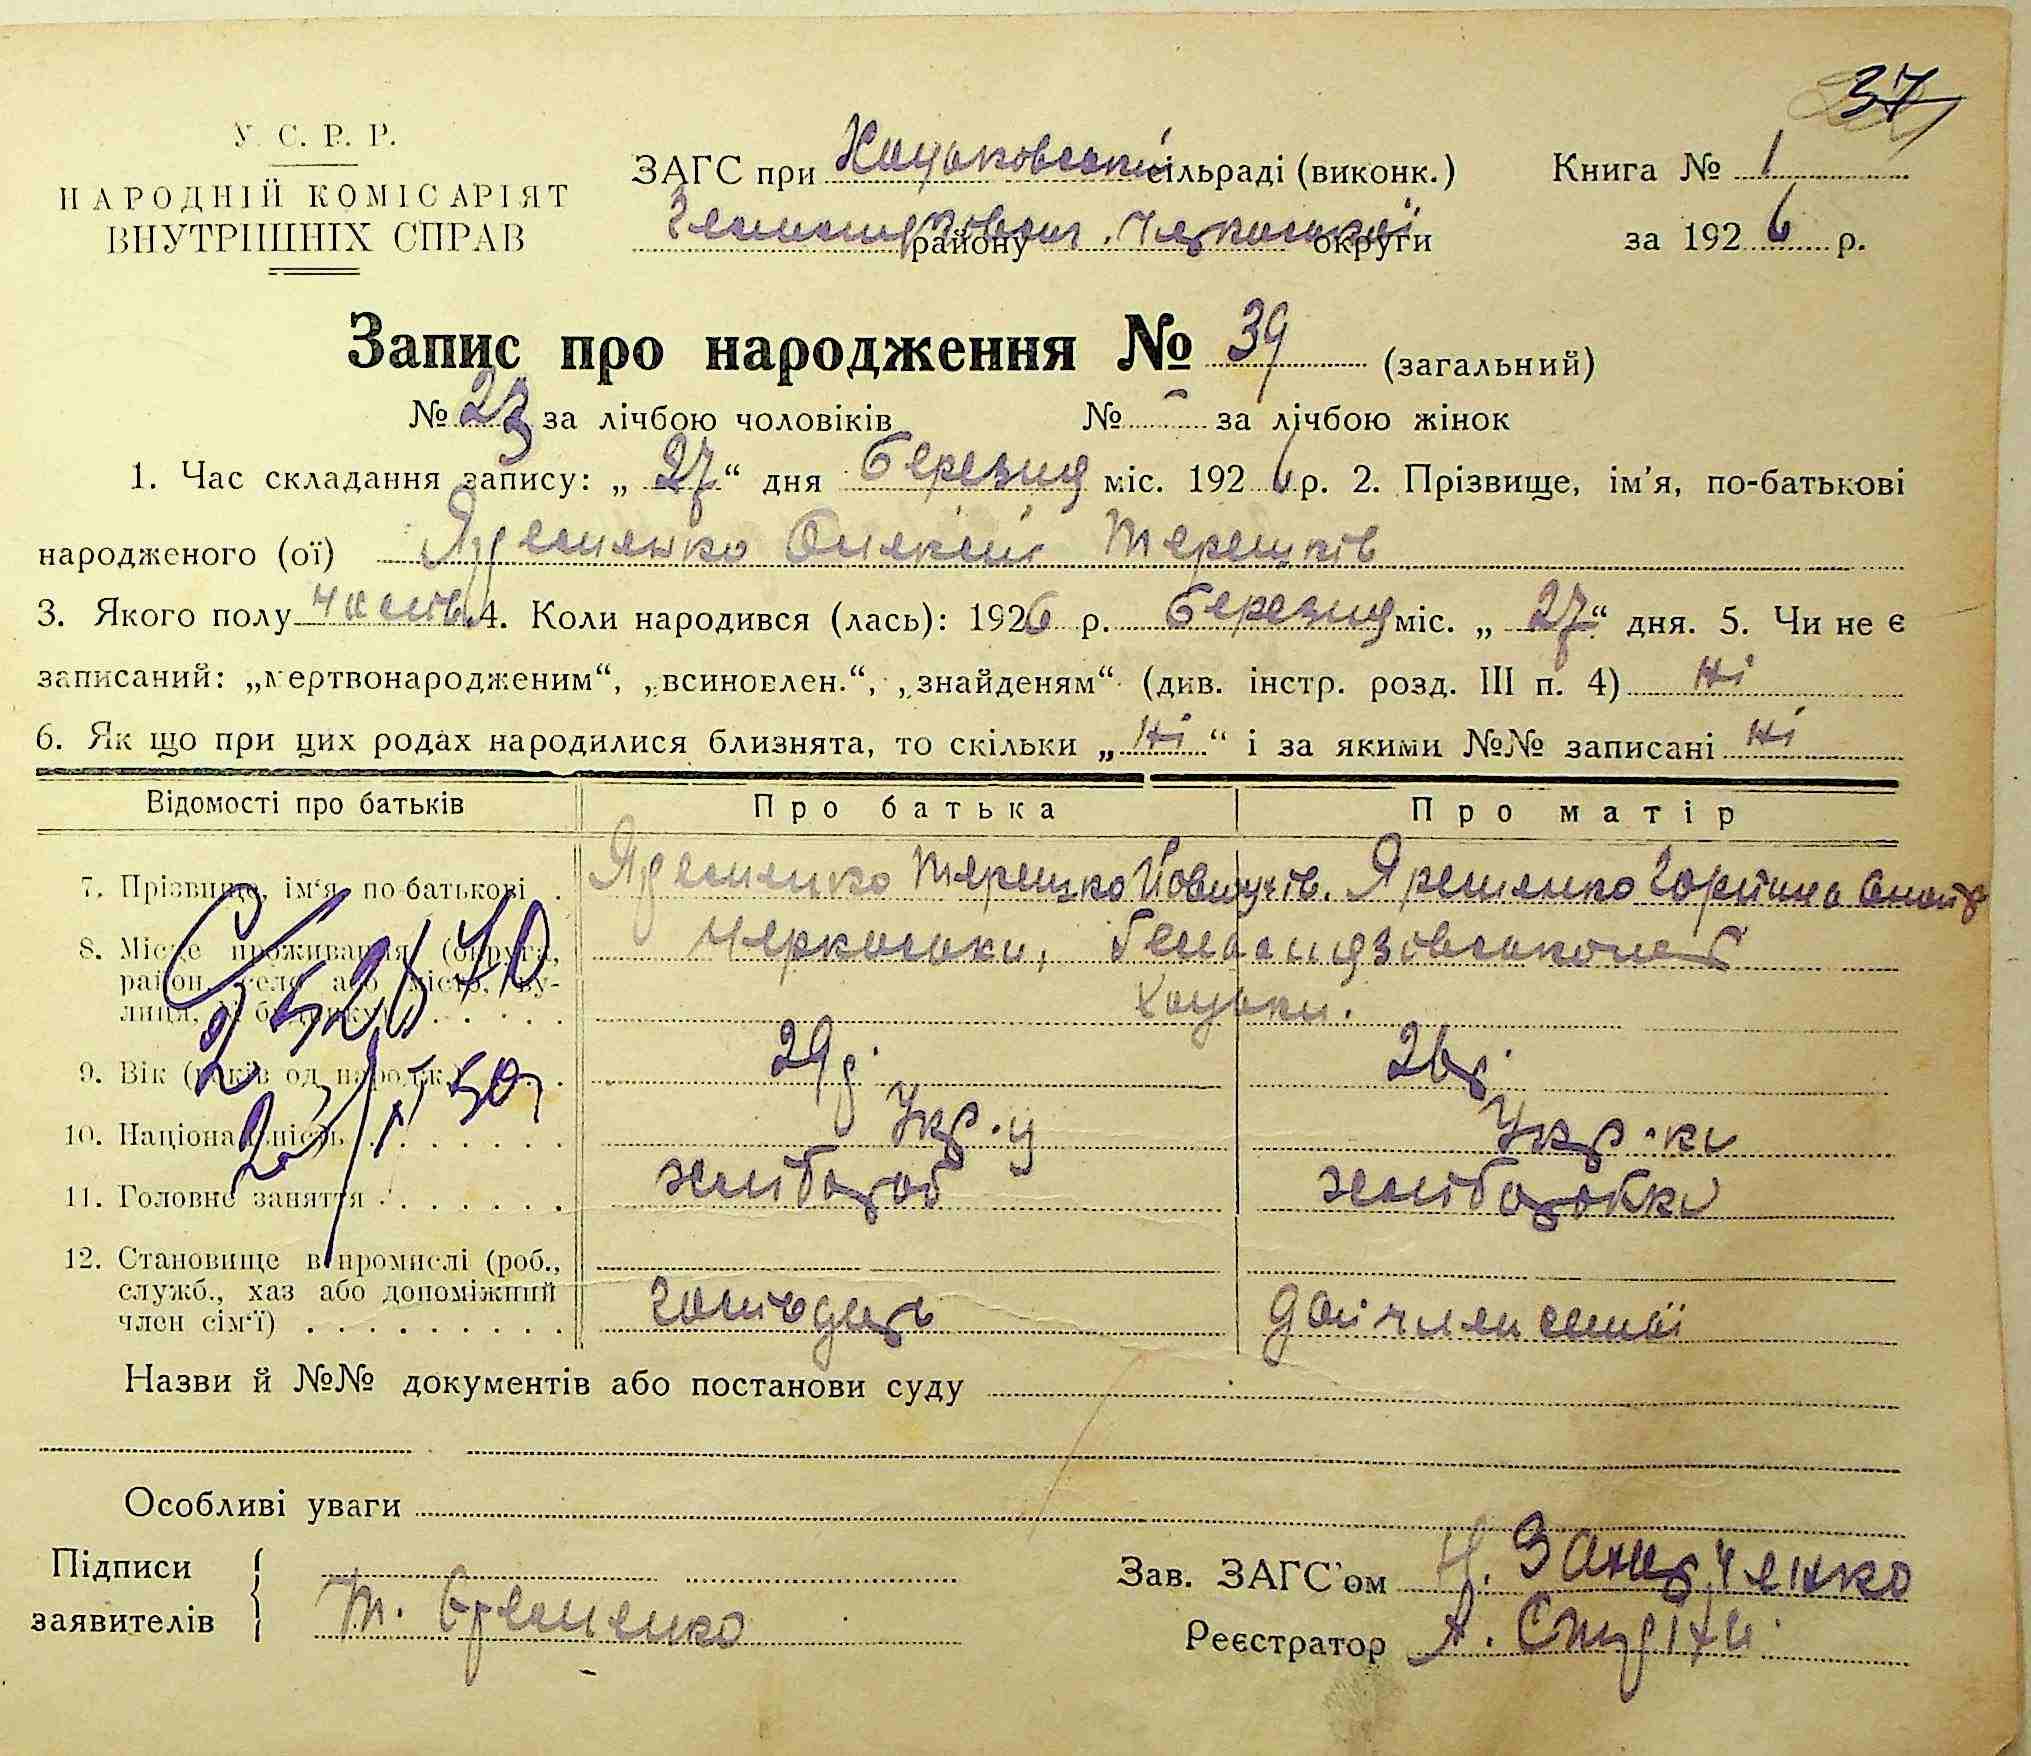 37
У. С. Р. Р.
НАРОДНІЙ КОМІСАРІЯТ
ВНУТРІШНІХ СПРАВ
ЗАГС при Хацьковській сільраді (виконк.)
району Черкаської округи
Книга № 1
за 1926 р.
Запис про народження № 39 (загальний)
№ 23 за лічбою чоловіків № - за лічбою жінок
1. Час складання запису: „ 27 “ дня березня міс. 1926 р. 2. Прізвище, ім'я, по-батькові
народженого (ої) Яременко Олексій Терешків
3. Якого полу чолов. 4. Коли народився (лась): 1926 р. березня міс. „ 27 “ дня. 5. Чи не є
записаний: „мертвонародженим“, „всиновлен.“, „знайденям“ (див. інстр. розд. III п. 4) Ні
6. Як що при цих родах народилися близнята, то скільки „ Ні “ і за якими №№ записані Ні
Відомості про батьків Про батька Про матір
7. Прізвище, ім'я по-батькові . Яременко Терешко Яременко Горпина
8. Місце проживання (округа, Черкаськи,
район, село або місто, ву-
лиця, № будинку) . . . . . Хацьки.
9. Вік (років од народж.) . . . 29 р. 26 р.
10. Національність . . . . . . . Укр-ц Укр-ка
11. Головне заняття . . . . . . . хлібороб хліборобка
12. Становище в промислі (роб.,
служб., хаз або допоміжний
член сім'ї) . . . . . . . . . господарь доп член семьі
Назви й №№ документів або постанови суду
Особливі уваги
Підписи
заявителів
Т. Єременко
Зав. ЗАГС'ом
Реєстратор А.